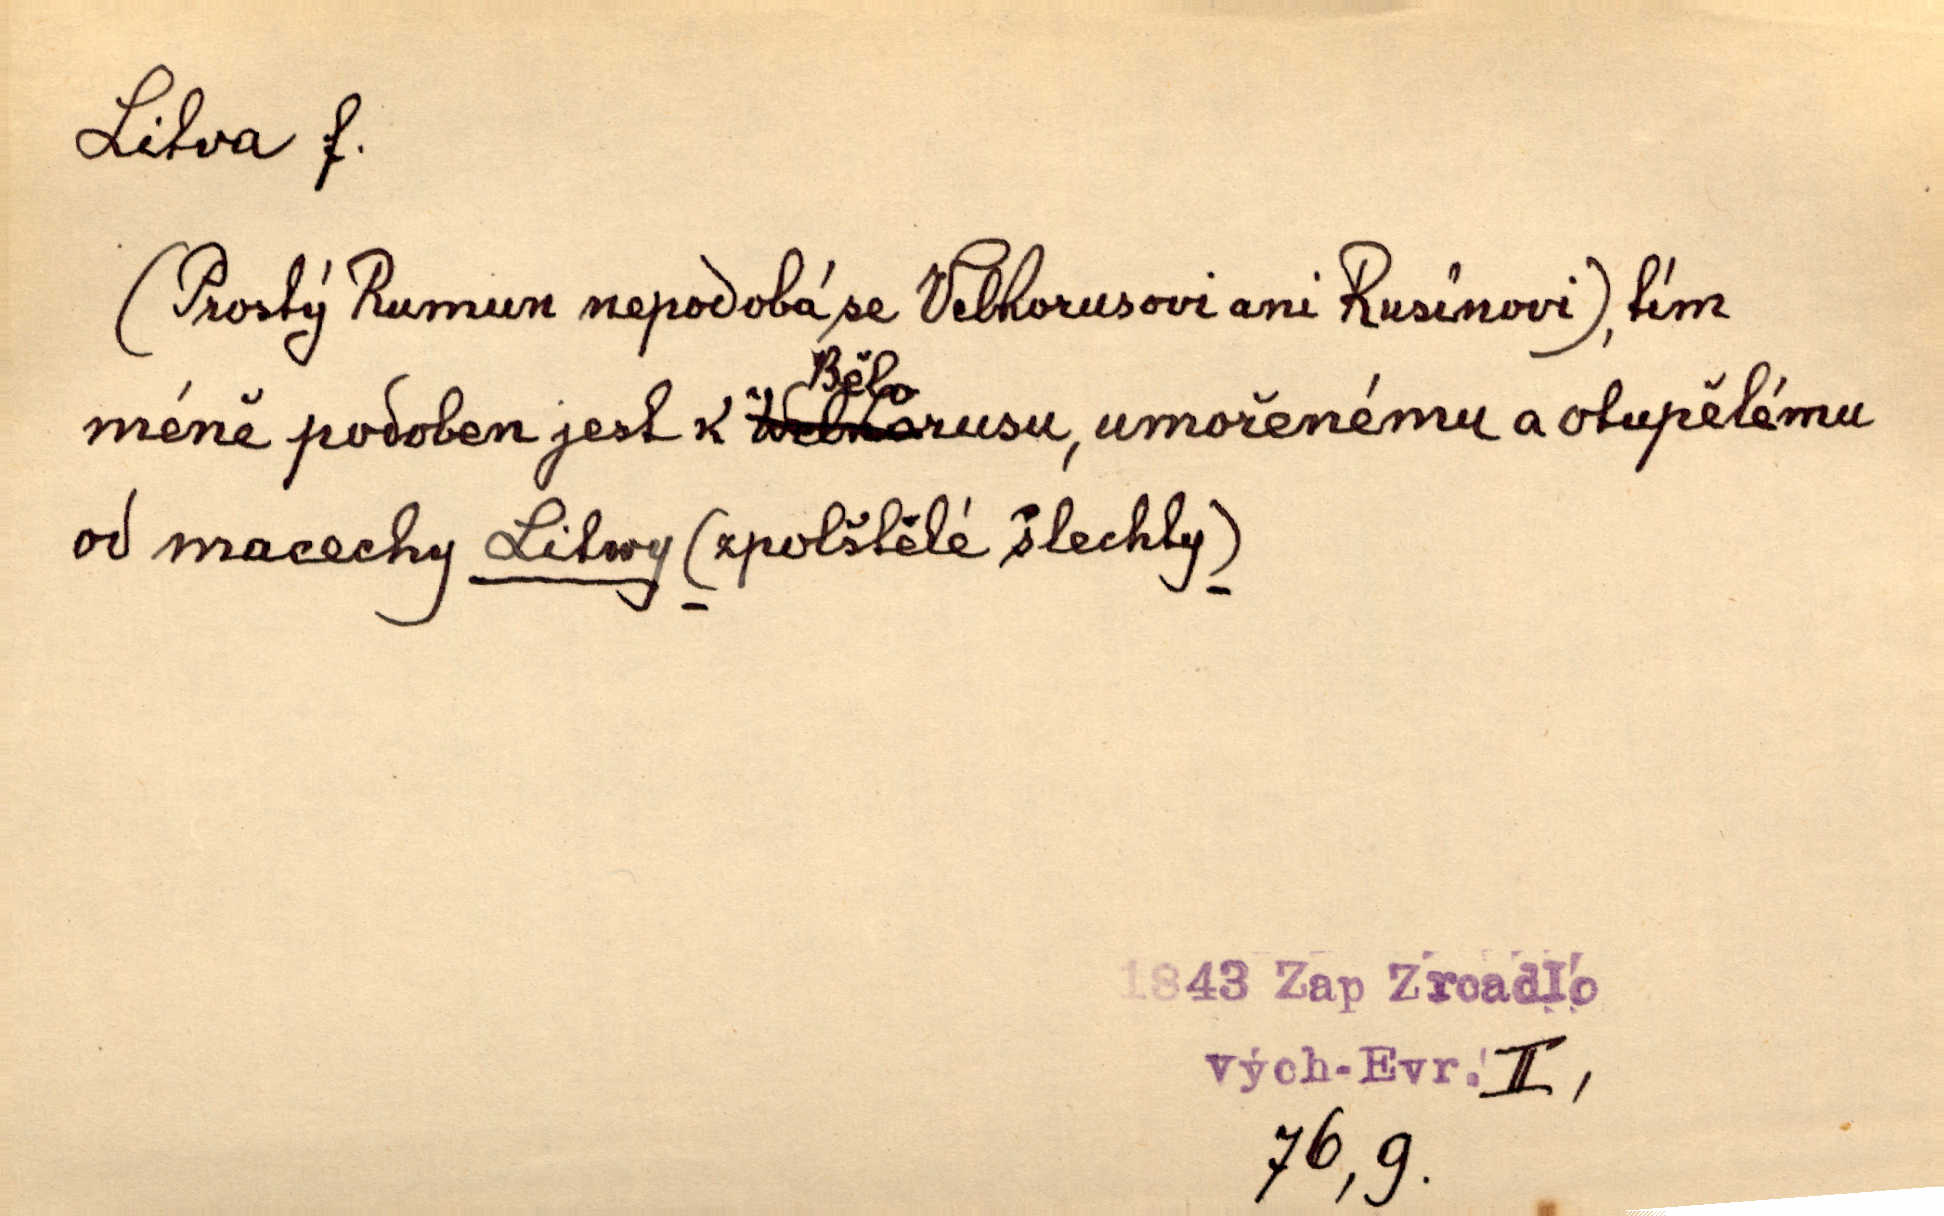 Litva f.
(Prostý Rumun nepodobá se Velkorusovi ani Rusínovi), tím
méně podoben jest k Bělorusu, umořenému a otupělému
od macechy Litwy (zpolštělé šlechty)
1843 Zap Zrcadlo
vých-Evr. II,
76, 9.